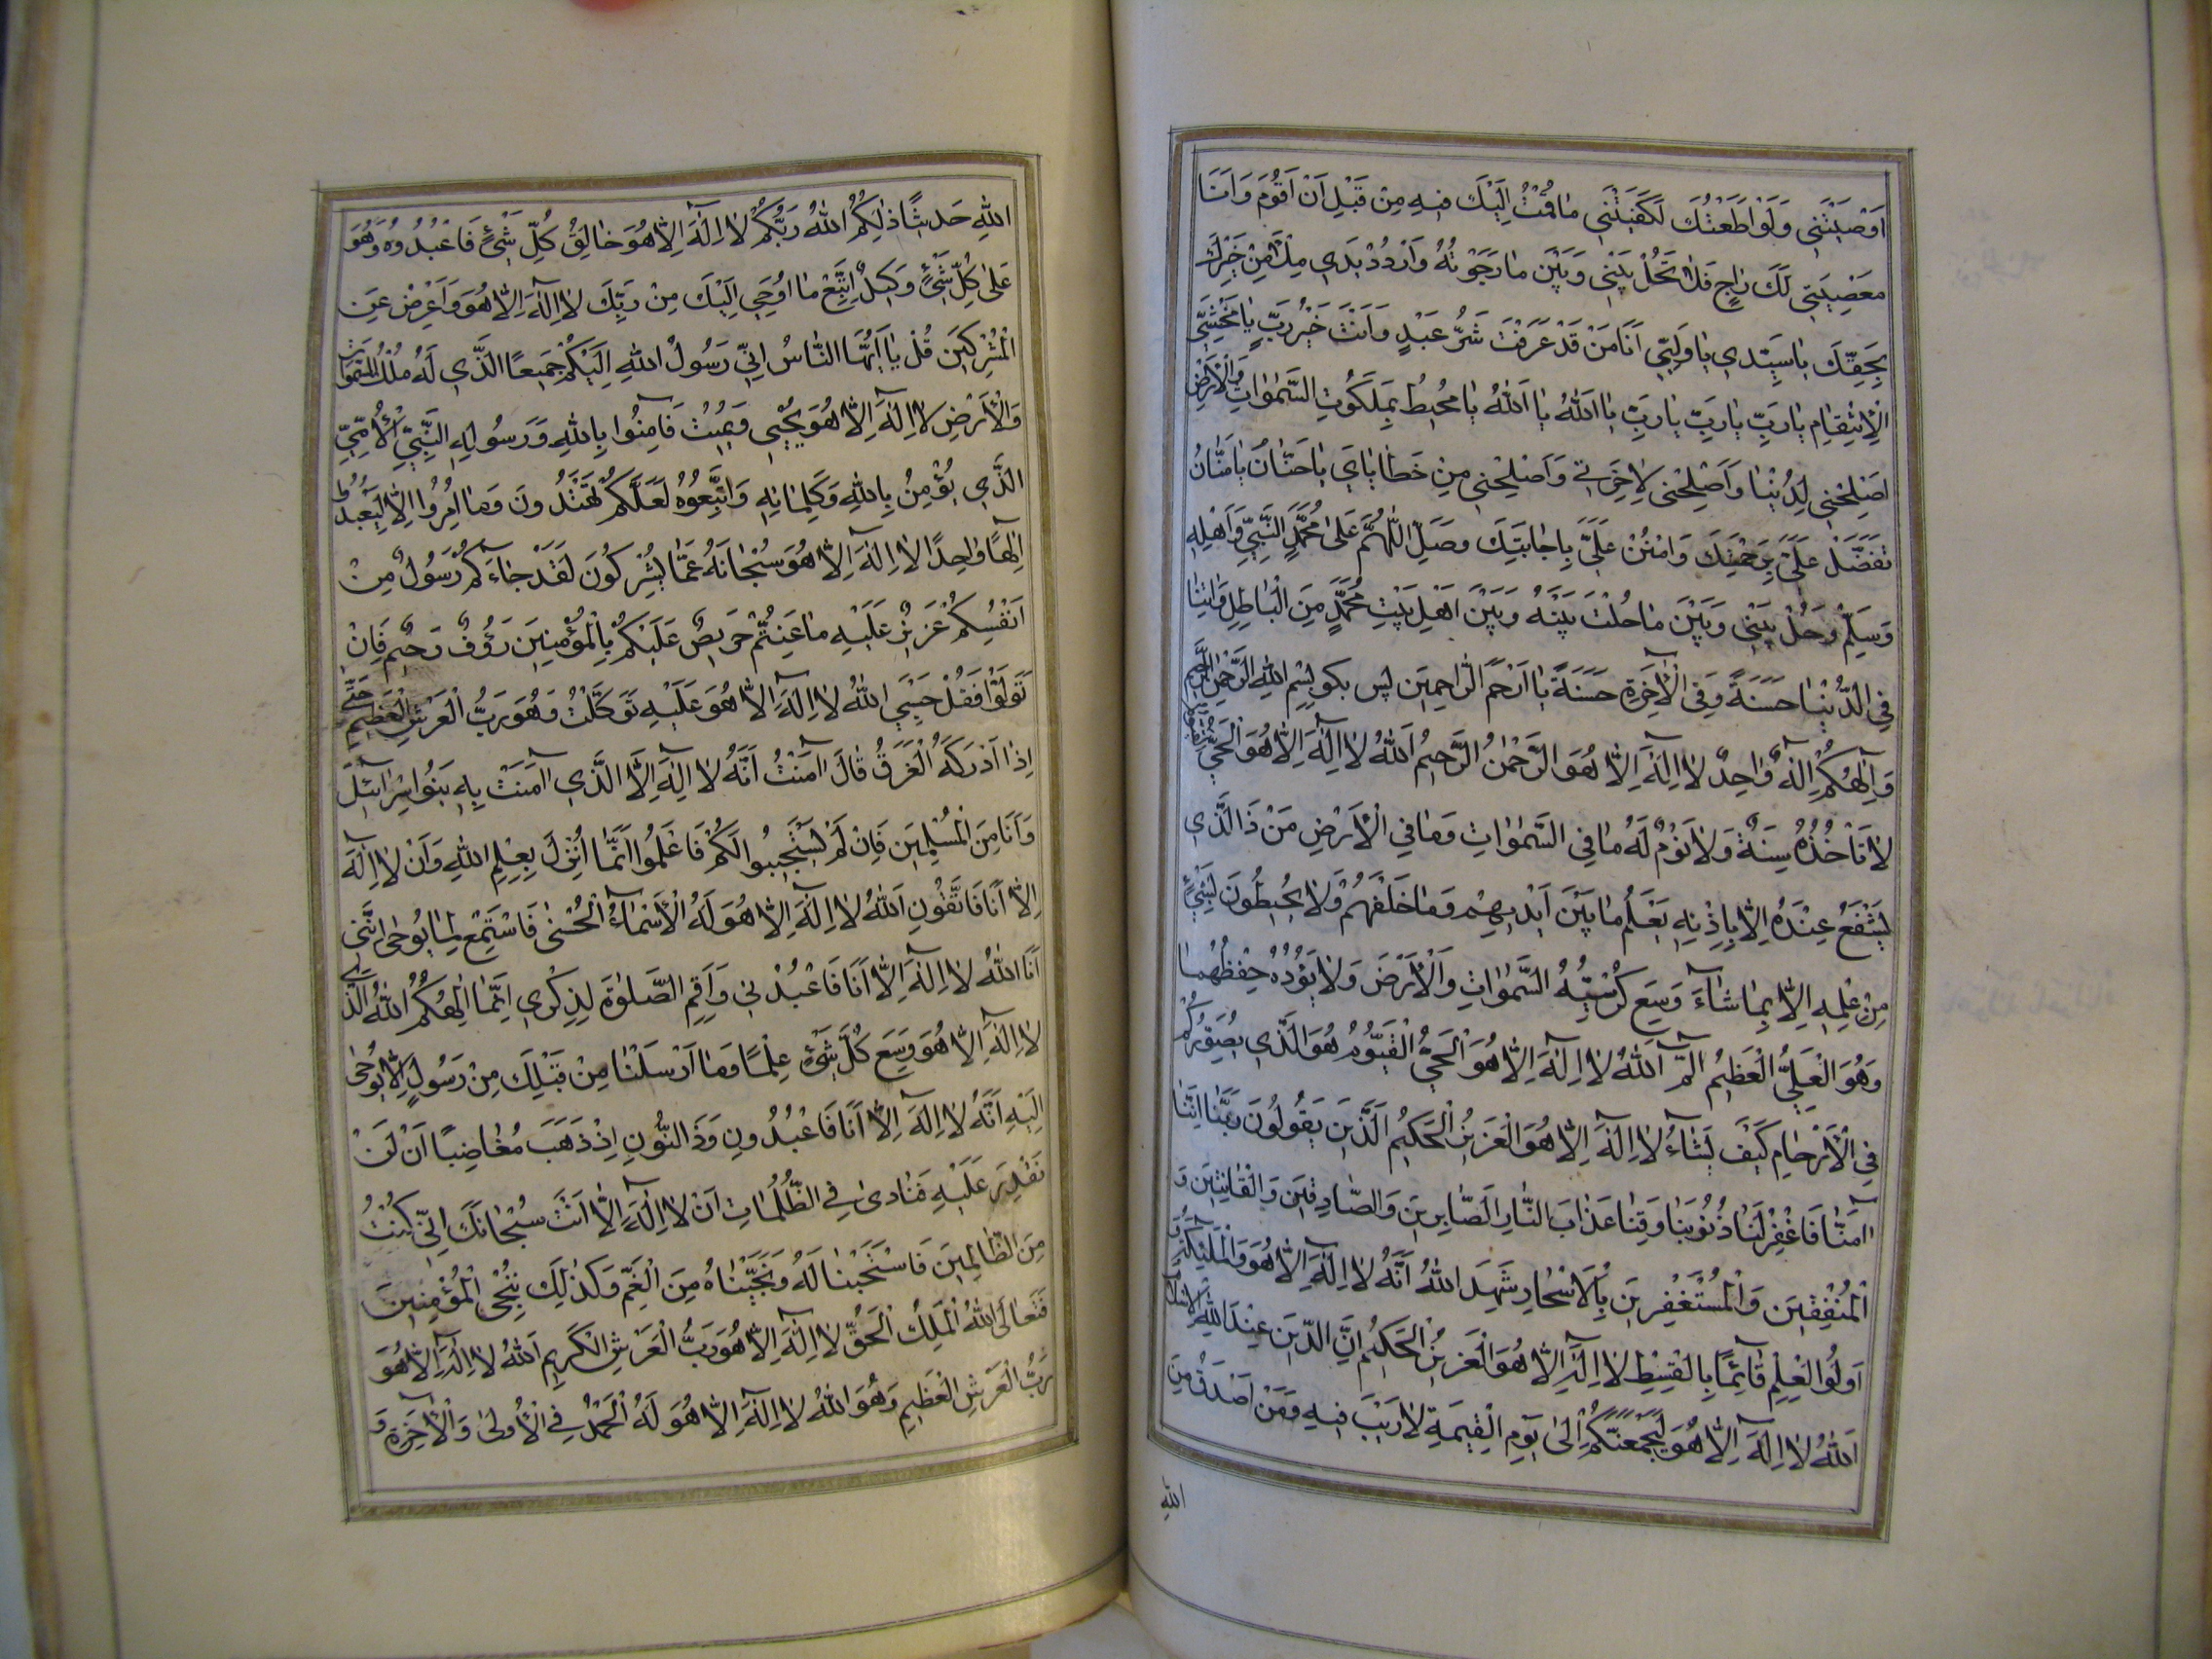 اَوْصَيْتَنِي وَلَوْ اَطَعْتُكَ لَكَفَيْتَنِي مَا قُمْتُ اِلَيْكَ فِيهِ مِنْ قَبْلِ اَنْ اَقُومَ وَاَنَا
مَعْصِيَتِي لَكَ رَاجٍ فَلَا تَحُلْ بَيْنِي وَبَيْنَ مَا رَجَوْتُهُ وَارْدُدْ يَدِي مِلْاً مِنْ خَيْرِكَ
بِحَقِّكَ يَا سَيِّدِي يَا وَلِيِّي اَنَا مَنْ قَدْ عَرَفْتَ شَرُّ عَبْدٍ وَاَنْتَ خَيْرُ رَبٍّ يَا مَخْشِيَّ
الْاِنْتِقَامِ يَا رَبِّ يَا رَبِّ يَا رَبِّ يَا اَللهُ يَا اَللهُ يَا مُحِيطُ بِمَلَكُوتِ السَّمٰوَاتِ وَالْاَرْضِ
اَصْلِحْنِي لِدُنْيَا وَاَصْلِحْنِي لِاٰخِرَتِي وَاَصْلِحْنِي مِنْ خَطَايَايَ يَا حَنَّانُ يَا مَنَّانُ
تَفَضَّلْ عَلَيَّ بِرَحْمَتِكَ وَامْنُنْ عَلَيَّ بِاِجَابَتِكَ وَصَلِّ اللّٰهُمَّ عَلٰى مُحَمَّدٍ النَّبِيِّ وَاَهْلِهِ
وَسَلِّمْ وَحُلْ بَيْنِي وَبَيْنَ مَا حُلْتَ بَيْنَهُ وَبَيْنَ اَهْلِ بَيْتِ مُحَمَّدٍ مِنَ الْبَاطِلِ وَاٰتِنَا
فِي الدُّنْيَا حَسَنَةً وَفِي الْاٰخِرَةِ حَسَنَةً يَا اَرْحَمَ الرَّاحِمِينَ پس بکو بِسْمِ اللهِ الرَّحْمٰنِ الرَّحِيمِ
وَاِلٰهُكُمْ اِلٰهٌ وَاحِدٌ لَا اِلٰهَ اِلَّا هُوَ الرَّحْمٰنُ الرَّحِيمُ اَللهُ لَا اِلٰهَ اِلَّا هُوَ الْحَيُّ الْقَيُّومُ
لَا تَاْخُذُهُ سِنَةٌ وَلَا نَوْمٌ لَهُ مَا فِي السَّمٰوَاتِ وَمَا فِي الْاَرْضِ مَنْ ذَا الَّذِي
يَشْفَعُ عِنْدَهُ اِلَّا بِاِذْنِهِ يَعْلَمُ مَا بَيْنَ اَيْدِيهِمْ وَمَا خَلْفَهُمْ وَلَا يُحِيطُونَ بِشَيْءٍ
مِنْ عِلْمِهِ اِلَّا بِمَا شَاءَ وَسِعَ كُرْسِيُّهُ السَّمٰوَاتِ وَالْاَرْضَ وَلَا يَؤُدُهُ حِفْظُهُمَا
وَهُوَ الْعَلِيُّ الْعَظِيمُ الٓمٓ اَللهُ لَا اِلٰهَ اِلَّا هُوَ الْحَيُّ الْقَيُّومُ هُوَ الَّذِي يُصَوِّرُكُمْ
فِي الْاَرْحَامِ كَيْفَ يَشَاءُ لَا اِلٰهَ اِلَّا هُوَ الْعَزِيزُ الْحَكِيمُ اَلَّذِينَ يَقُولُونَ رَبَّنَا اِنَّنَا
اٰمَنَّا فَاغْفِرْ لَنَا ذُنُوبَنَا وَقِنَا عَذَابَ النَّارِ اَلصَّابِرِينَ وَالصَّادِقِينَ وَالْقَانِتِينَ وَ
الْمُنْفِقِينَ وَالْمُسْتَغْفِرِينَ بِالْاَسْحَارِ شَهِدَ اللهُ اَنَّهُ لَا اِلٰهَ اِلَّا هُوَ وَالْمَلٰئِكَةُ وَ
اُولُوا الْعِلْمِ قَائِمًا بِالْقِسْطِ لَا اِلٰهَ اِلَّا هُوَ الْعَزِيزُ الْحَكِيمُ اِنَّ الدِّينَ عِنْدَ اللهِ الْاِسْلَامُ
اَللهُ لَا اِلٰهَ اِلَّا هُوَ لَيَجْمَعَنَّكُمْ اِلٰى يَوْمِ الْقِيٰمَةِ لَا رَيْبَ فِيهِ وَمَنْ اَصْدَقُ مِنَ
الله
اللهِ حَدِيثًا ذٰلِكُمُ اللهُ رَبُّكُمْ لَا اِلٰهَ اِلَّا هُوَ خَالِقُ كُلِّ شَيْءٍ فَاعْبُدُوهُ وَهُوَ
عَلٰى كُلِّ شَيْءٍ وَكِيلٌ اِتَّبِعْ مَا اُوحِيَ اِلَيْكَ مِنْ رَبِّكَ لَا اِلٰهَ اِلَّا هُوَ وَاَعْرِضْ عَنِ
الْمُشْرِكِينَ قُلْ يَا اَيُّهَا النَّاسُ اِنِّي رَسُولُ اللهِ اِلَيْكُمْ جَمِيعًا الَّذِي لَهُ مُلْكُ السَّمٰوَاتِ
وَالْاَرْضِ لَا اِلٰهَ اِلَّا هُوَ يُحْيِي وَيُمِيتُ فَاٰمِنُوا بِاللهِ وَرَسُولِهِ النَّبِيِّ الْاُمِّيِّ
الَّذِي يُؤْمِنُ بِاللهِ وَكَلِمَاتِهِ وَاتَّبِعُوهُ لَعَلَّكُمْ تَهْتَدُونَ وَمَا اُمِرُوا اِلَّا لِيَعْبُدُوا
اِلٰهًا وَاحِدًا لَا اِلٰهَ اِلَّا هُوَ سُبْحَانَهُ عَمَّا يُشْرِكُونَ لَقَدْ جَاءَكُمْ رَسُولٌ مِنْ
اَنْفُسِكُمْ عَزِيزٌ عَلَيْهِ مَا عَنِتُّمْ حَرِيصٌ عَلَيْكُمْ بِالْمُؤْمِنِينَ رَؤُفٌ رَحِيمٌ فَاِنْ
تَوَلَّوْا فَقُلْ حَسْبِيَ اللهُ لَا اِلٰهَ اِلَّا هُوَ عَلَيْهِ تَوَكَّلْتُ وَهُوَ رَبُّ الْعَرْشِ الْعَظِيمِ حَتّٰى
اِذَا اَدْرَكَهُ الْغَرَقُ قَالَ اٰمَنْتُ اَنَّهُ لَا اِلٰهَ اِلَّا الَّذِي اٰمَنَتْ بِهِ بَنُوا اِسْرَائِيلَ
وَاَنَا مِنَ الْمُسْلِمِينَ فَاِنْ لَمْ يَسْتَجِيبُوا لَكُمْ فَاعْلَمُوا اَنَّمَا اُنْزِلَ بِعِلْمِ اللهِ وَاَنْ لَا اِلٰهَ
اِلَّا اَنَا فَاتَّقُونِ اَللهُ لَا اِلٰهَ اِلَّا هُوَ لَهُ الْاَسْمَاءُ الْحُسْنٰى فَاسْتَمِعْ لِمَا يُوحٰى اِنَّنِي
اَنَا اللهُ لَا اِلٰهَ اِلَّا اَنَا فَاعْبُدْنِي وَاَقِمِ الصَّلٰوةَ لِذِكْرِي اِنَّمَا اِلٰهُكُمُ اللهُ الَّذِي
لَا اِلٰهَ اِلَّا هُوَ وَسِعَ كُلَّ شَيْءٍ عِلْمًا وَمَا اَرْسَلْنَا مِنْ قَبْلِكَ مِنْ رَسُولٍ اِلَّا يُوحٰى
اِلَيْهِ اَنَّهُ لَا اِلٰهَ اِلَّا اَنَا فَاعْبُدُونِ وَذَا النُّونِ اِذْ ذَهَبَ مُغَاضِبًا اَنْ لَنْ
نَقْدِرَ عَلَيْهِ فَنَادٰى فِي الظُّلُمَاتِ اَنْ لَا اِلٰهَ اِلَّا اَنْتَ سُبْحَانَكَ اِنِّي كُنْتُ
مِنَ الظَّالِمِينَ فَاسْتَجَبْنَا لَهُ وَنَجَّيْنَاهُ مِنَ الْغَمِّ وَكَذٰلِكَ نُنْجِي الْمُؤْمِنِينَ
فَتَعَالَى اللهُ الْمَلِكُ الْحَقُّ لَا اِلٰهَ اِلَّا هُوَ رَبُّ الْعَرْشِ الْكَرِيمِ اَللهُ لَا اِلٰهَ اِلَّا هُوَ
رَبُّ الْعَرْشِ الْعَظِيمِ وَهُوَ اللهُ لَا اِلٰهَ اِلَّا هُوَ لَهُ الْحَمْدُ فِي الْاُولٰى وَالْاٰخِرَةِ وَ